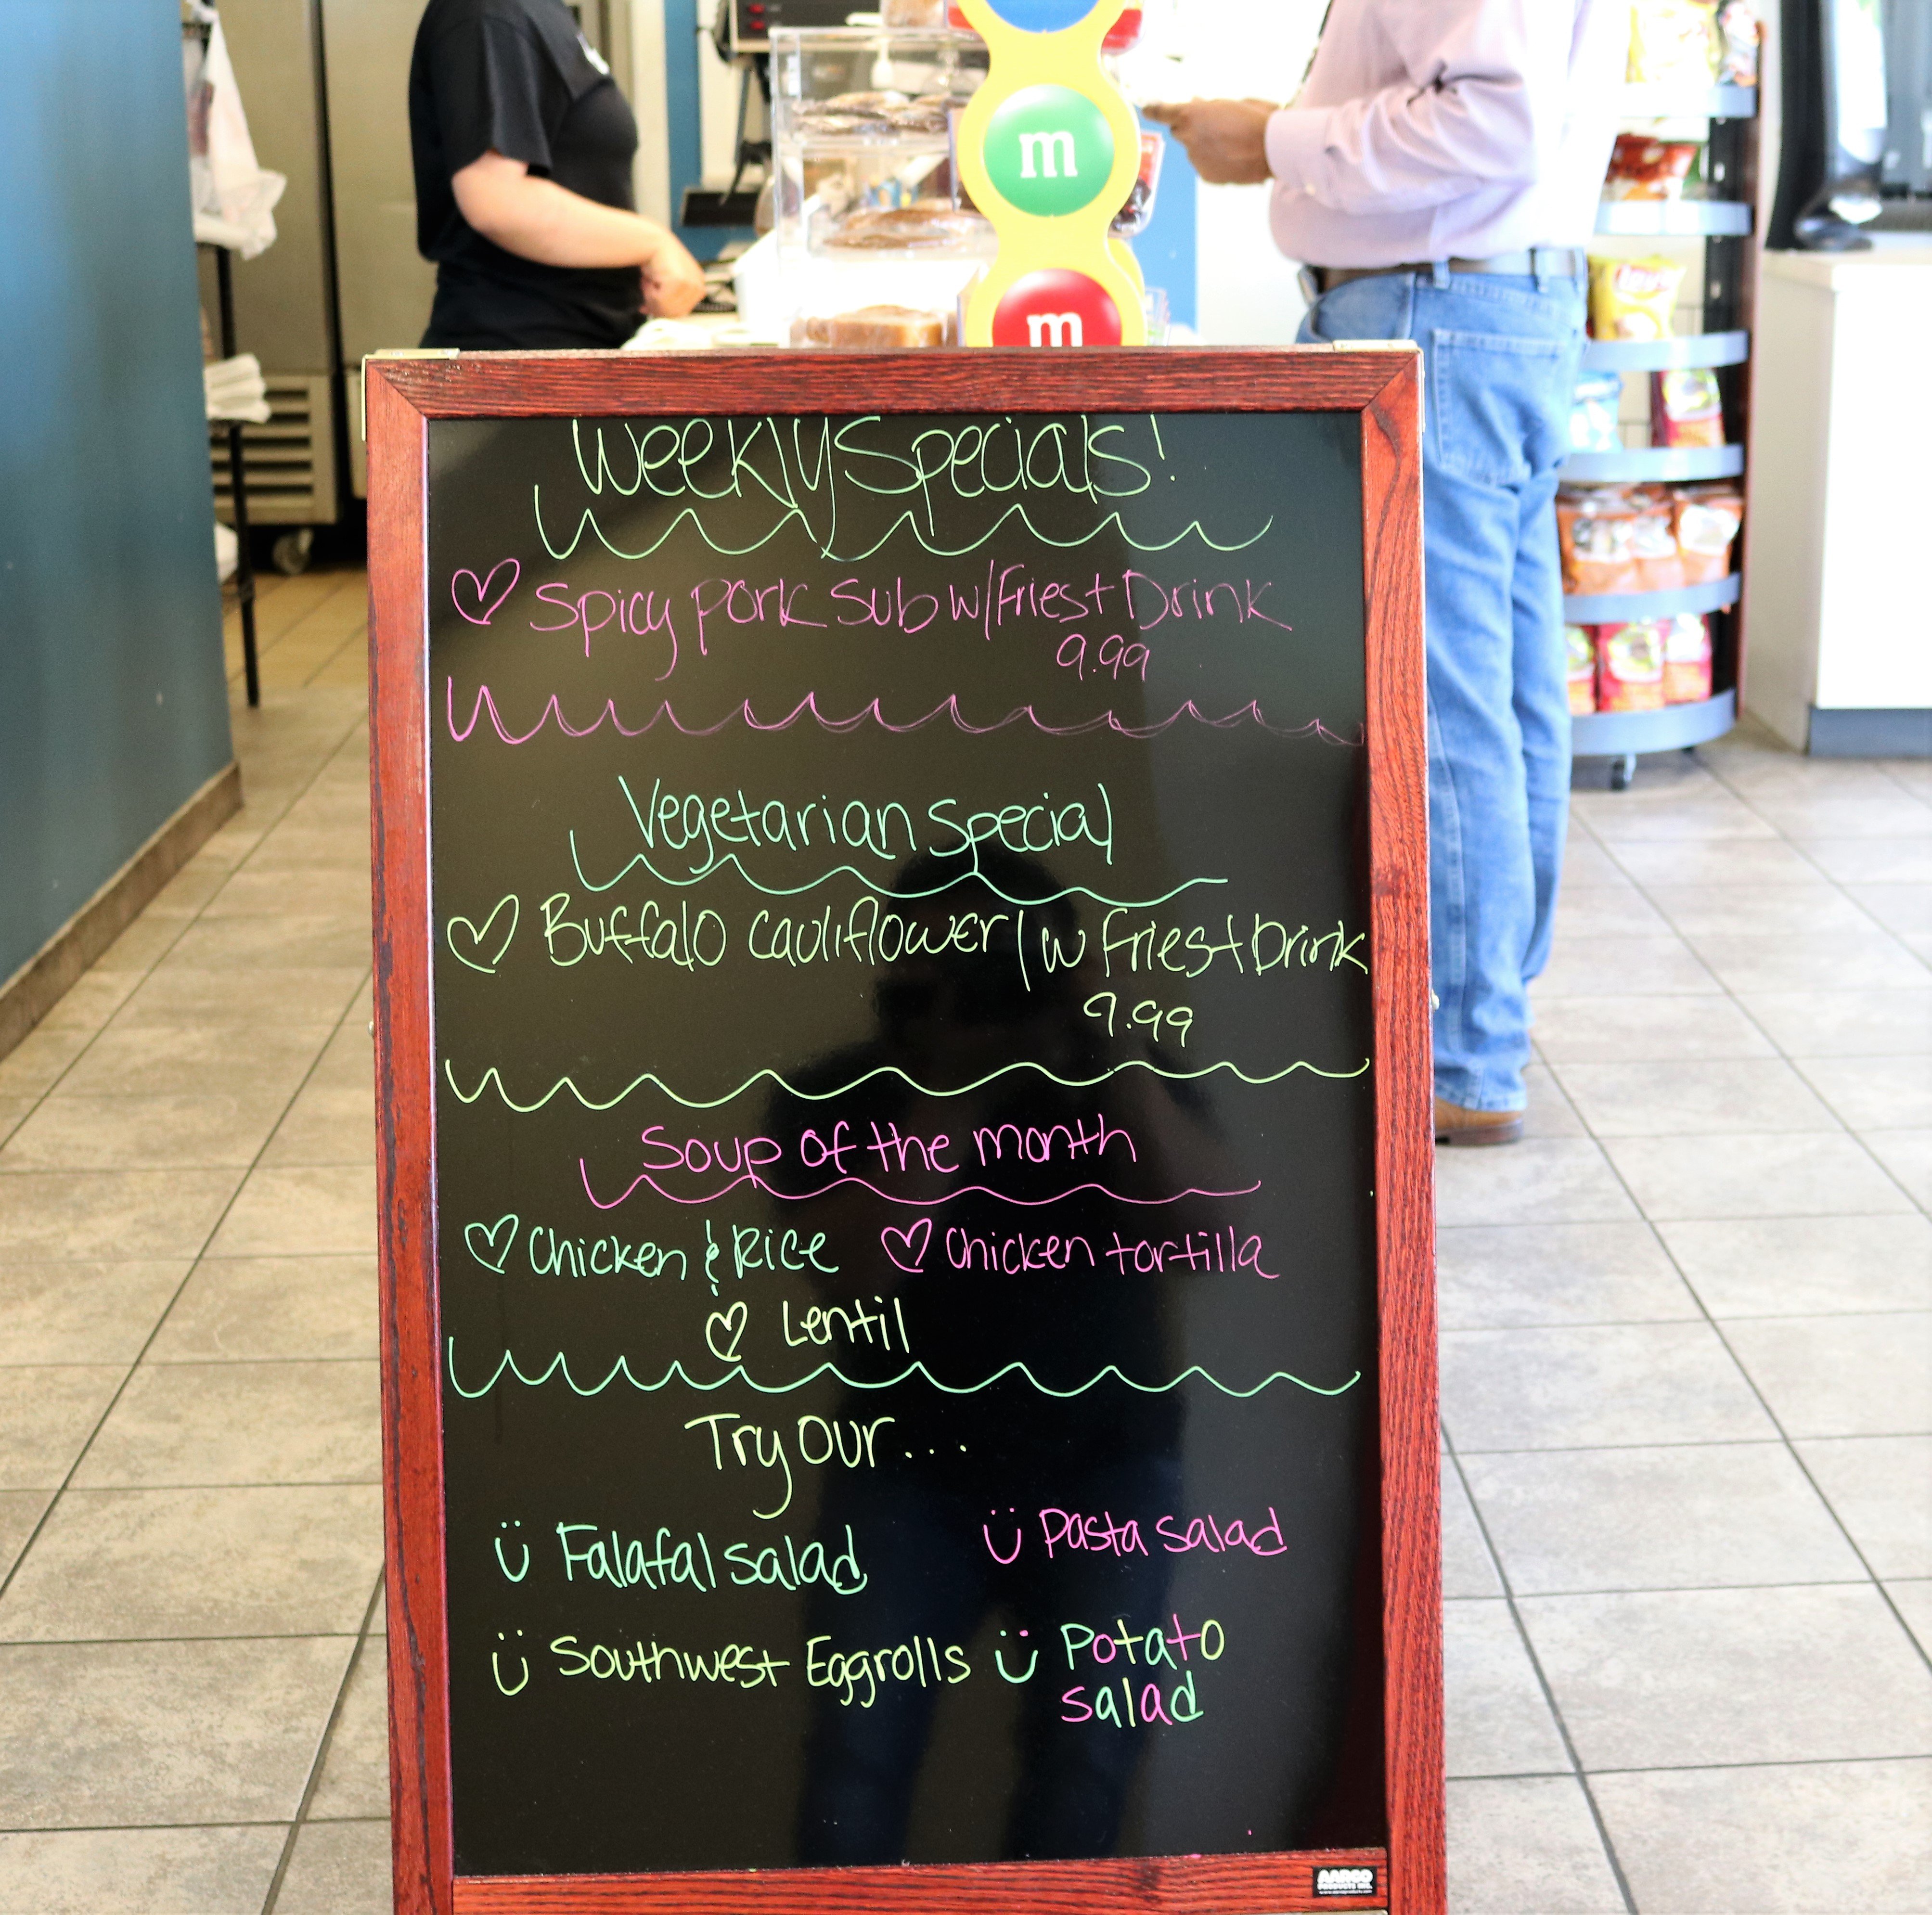 m
m
Weekly Specials!
Spicy pork sub w/Fries + Drink
9.99
Vegetarian Special
Buffalo Cauliflower/w Fries + Drink
9.99
Soup of the month
Chicken & Rice Chicken tortilla
Lentil
Try Our...
Falafal salad Pasta salad
Southwest Eggrolls Potato
salad
AARCO